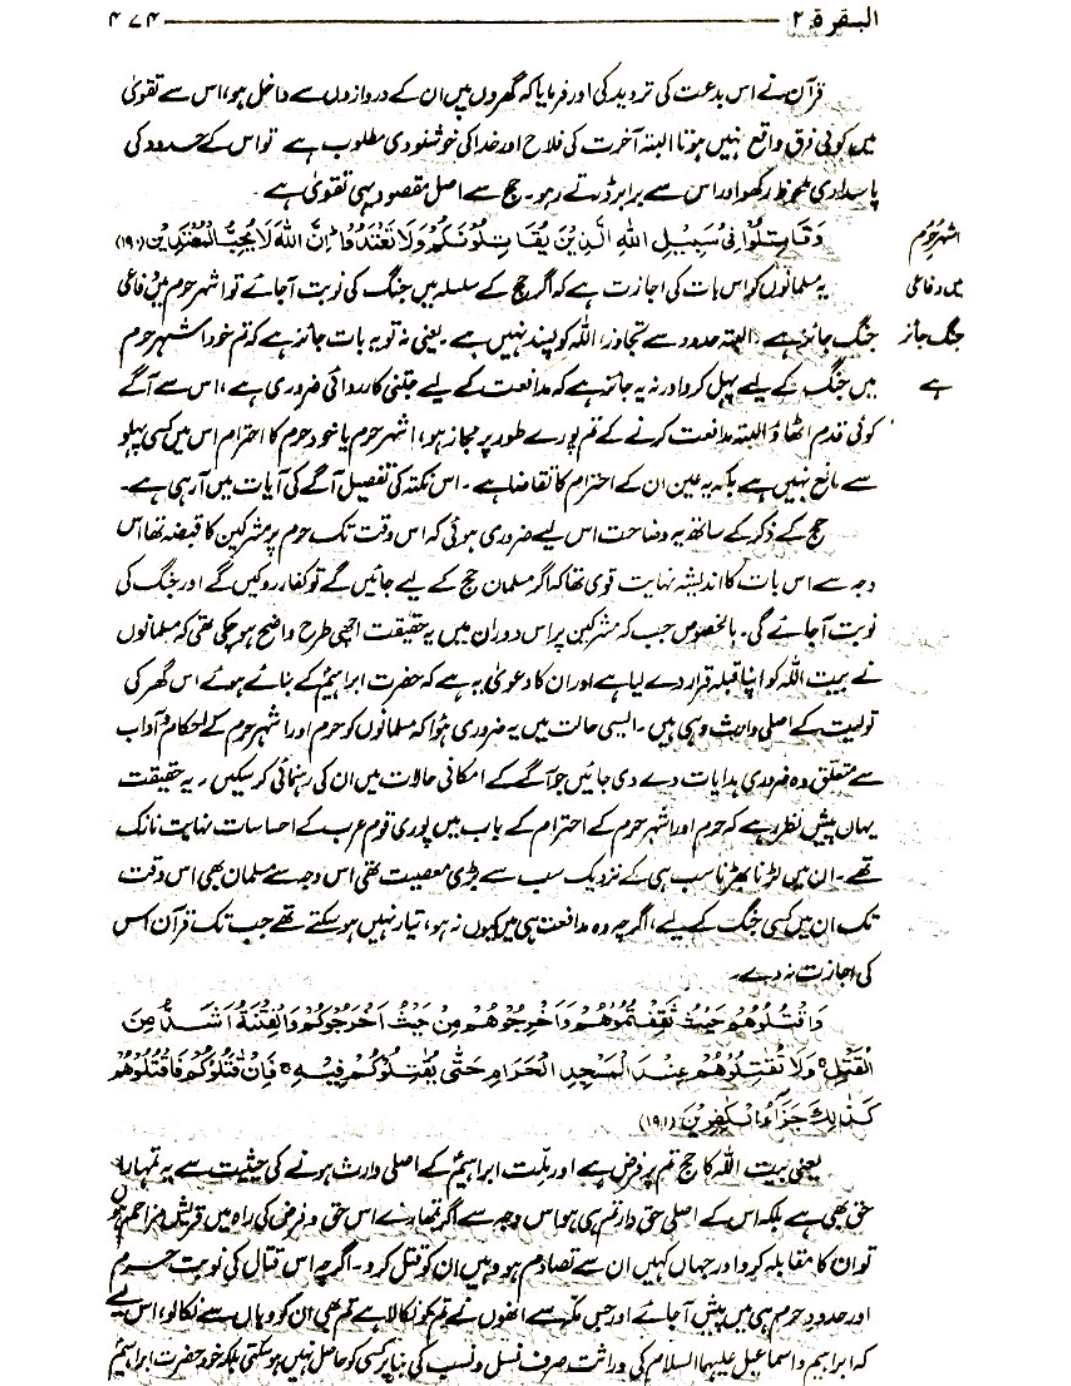 البقرة ۲ ۴۷۴
قرآن نے اس بدعت کی تردید کی اور فرمایا کہ گھروں میں ان کے دروازوں سے داخل ہو، اس سے تقویٰ
میں کوئی فرق واقع نہیں ہوتا البتہ آخرت کی فلاح اور خدا کی خوشنودی مطلوب ہے تو اس کے حدود کی
پاسداری ملحوظ رکھو اور اس سے برابر ڈرتے رہو۔ حج سے اصل مقصود یہی تقویٰ ہے۔
وَقَاتِلُوْا فِیْ سَبِیْلِ اللّٰهِ الَّذِیْنَ یُقَاتِلُوْنَكُمْ وَلَا تَعْتَدُوْا ؕ اِنَّ اللّٰهَ لَا یُحِبُّ الْمُعْتَدِیْنَ (۱۹۰)
اشہر حُرم
یہ مسلمانوں کو اس بات کی اجازت ہے کہ اگر حج کے سلسلہ میں جنگ کی نوبت آجائے تو اشہر حرم میں دفاعی
میں دفاعی
جنگ جائز ہے۔ البتہ حدود سے تجاوز، اللہ کو پسند نہیں ہے۔ یعنی نہ تو یہ بات جائز ہے کہ تم خود اشہر حرم
جنگ جائز
میں جنگ کے لیے پہل کرو اور نہ یہ جائز ہے کہ مدافعت کے لیے جتنی کارروائی ضروری ہے، اس سے آگے
ہے
کوئی قدم اٹھاؤ البتہ مدافعت کرنے کے تم پورے طور پر مجاز ہو، اشہر حرم یا خود حرم کا احترام اس میں کسی پہلو
سے مانع نہیں ہے بلکہ یہ عین ان کے احترام کا تقاضا ہے۔ اس نکتہ کی تفصیل آگے کی آیات میں آرہی ہے۔
حج کے ذکر کے ساتھ یہ وضاحت اس لیے ضروری ہوئی کہ اس وقت تک حرم پر مشرکین کا قبضہ تھا اس
وجہ سے اس بات کا اندیشہ نہایت قوی تھا کہ اگر مسلمان حج کے لیے جائیں گے تو کفار روکیں گے اور جنگ کی
نوبت آجائے گی۔ بالخصوص جب کہ مشرکین پر اس دوران میں یہ حقیقت اچھی طرح واضح ہوچکی تھی کہ مسلمانوں
نے بیت اللہ کو اپنا قبلہ قرار دے لیا ہے اور ان کا دعویٰ یہ ہے کہ حضرت ابراہیمؑ کے بنائے ہوئے اس گھر کی
تولیت کے اصلی وارث وہی ہیں۔ ایسی حالت میں یہ ضروری ہوا کہ مسلمانوں کو حرم اور اشہر حرم کے احکام و آداب
سے متعلق وہ ضروری ہدایات دے دی جائیں جو آگے کے امکانی حالات میں ان کی رہنمائی کر سکیں۔ یہ حقیقت
یہاں پیش نظر رہے کہ حرم اور اشہر حرم کے احترام کے باب میں پوری قوم عرب کے احساسات نہایت نازک
تھے۔ ان میں لڑنا بھڑنا سب ہی کے نزدیک سب سے بڑی معصیت تھی اس وجہ سے مسلمان بھی اس وقت
تک ان میں کسی جنگ کے لیے، اگرچہ وہ مدافعت ہی میں کیوں نہ ہو، تیار نہیں ہوسکتے تھے جب تک قرآن اس
کی اجازت نہ دے۔
وَاقْتُلُوْهُمْ حَیْثُ ثَقِفْتُمُوْهُمْ وَاَخْرِجُوْهُمْ مِنْ حَیْثُ اَخْرَجُوْكُمْ وَالْفِتْنَةُ اَشَدُّ مِنَ
الْقَتْلِ ۚ وَلَا تُقٰتِلُوْهُمْ عِنْدَ الْمَسْجِدِ الْحَرَامِ حَتّٰی یُقٰتِلُوْكُمْ فِیْهِ ۚ فَاِنْ قٰتَلُوْكُمْ فَاقْتُلُوْهُمْ
كَذٰلِكَ جَزَآءُ الْكٰفِرِیْنَ (۱۹۱)
یعنی بیت اللہ کا حج تم پر فرض ہے اور ملت ابراہیمؑ کے اصلی وارث ہونے کی حیثیت سے یہ تمہارا
حق بھی ہے بلکہ اس کے اصلی حق دار تم ہی ہو اس وجہ سے اگر تمھارے اس حق و فرض کی راہ میں قریش مزاحم ہوں
تو ان کا مقابلہ کرو اور جہاں کہیں ان سے تصادم ہو وہیں ان کو قتل کرو۔ اگرچہ اس قتال کی نوبت حرم
اور حدود حرم ہی میں پیش آجائے اور جس مکہ سے انھوں نے تم کو نکالا ہے تم بھی ان کو وہاں سے نکالو، اس لیے
کہ ابراہیم و اسماعیل علیہما السلام کی وراثت صرف نسل و نسب کی بنا پر کسی کو حاصل نہیں ہوسکتی بلکہ خود حضرت ابراہیمؑ